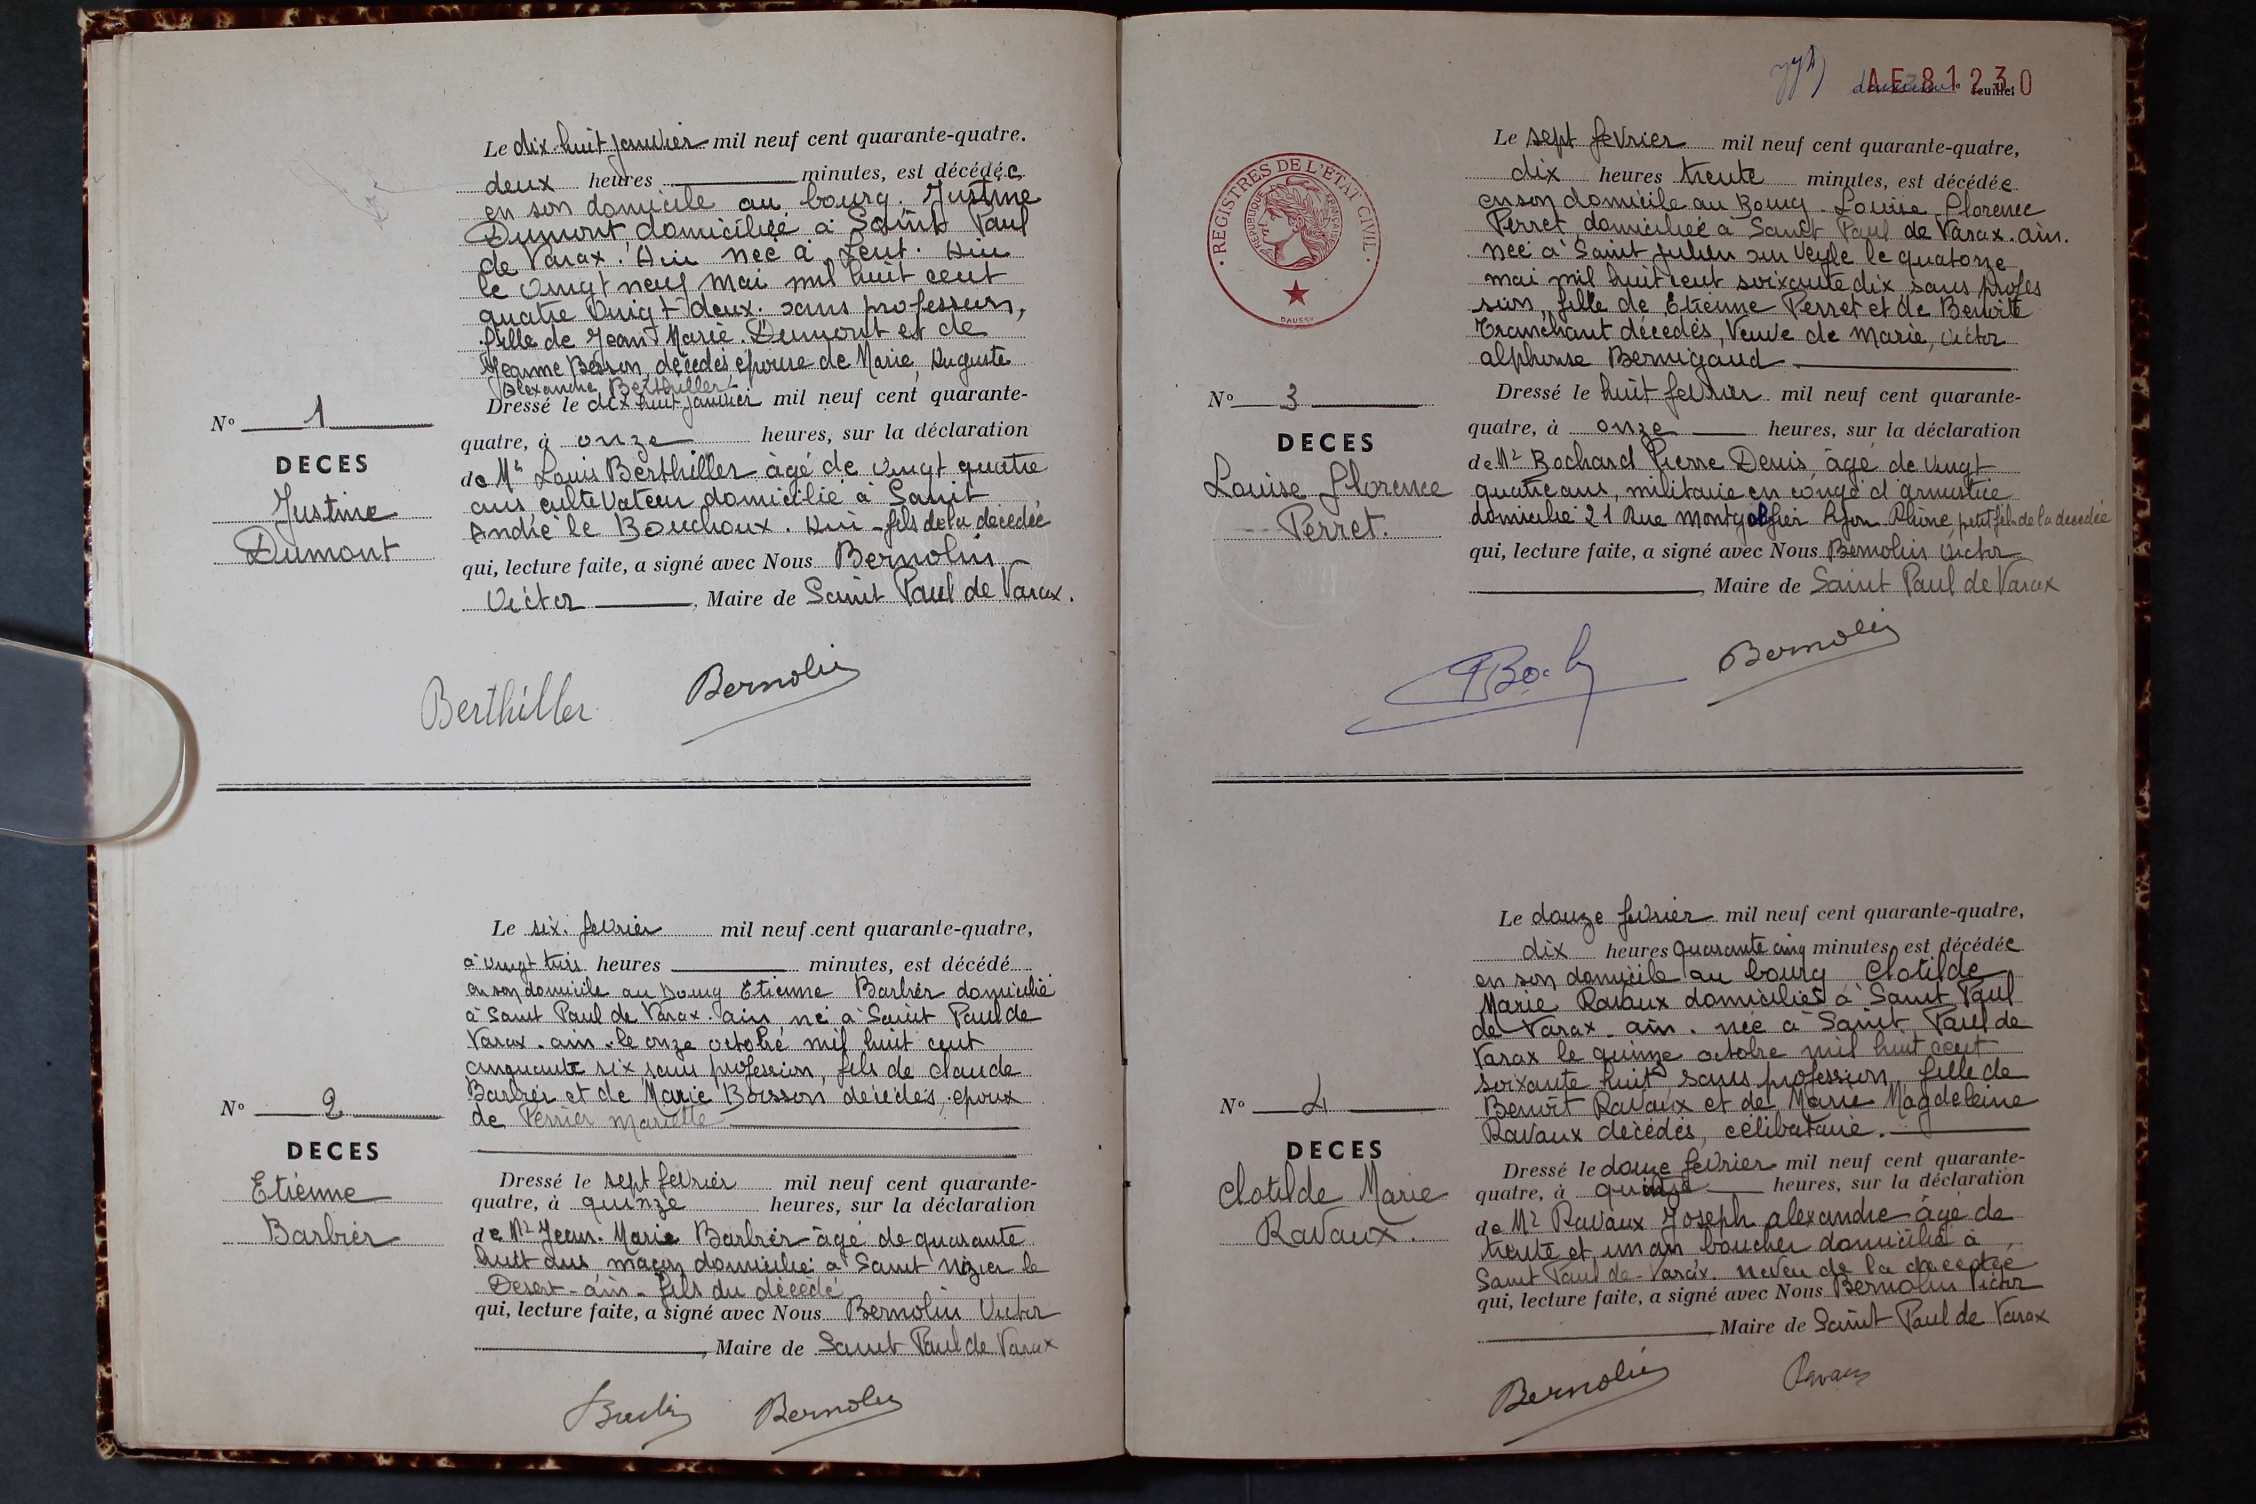 Le dix-huit janvier mil neuf cent quarante-quatre.
deux heures minutes, est décédée
en son domicile au bourg. Justine
Dumont, domiciliée à Saint Paul
de Varax. Ain née à Lent. Ain
le vingt neuf mai mil huit cent
quatre vingt deux. sans profession,
fille de Jean Marie Dumont et de
Jeanne Besson, décédés, épouse de Marie, Auguste
Alexandre Berthiller
Nº 1
DECES
Justine
Dumont
Dressé le dix huit janvier mil neuf cent quarante-
quatre, à onze heures, sur la déclaration
de Mr Louis Berthiller âgé de vingt quatre
ans, cultivateur domicilié à Saint
André le Bouchoux. Ain - fils de la décédée
qui, lecture faite, a signé avec Nous Bernolin
Victor, Maire de Saint Paul de Varax.
Berthiller Bernolin
Le six. fevrier mil neuf cent quarante-quatre,
à vingt trois heures minutes, est décédé
en son domicile au Bourg Etienne Barbier domicilié
à Saint Paul de Varax. ain, né à Saint Paul de
Varax. ain. le onze octobre mil huit cent
cinquante six sans profession, fils de claude
Barbier et de Marie Boisson décédés, epoux
de Perrier Mariette
Nº 2
DECES
Etienne
Barbier
Dressé le sept fevrier mil neuf cent quarante-
quatre, à quinze heures, sur la déclaration
de Mr Jean. Marie Barbier âgé de quarante
huit ans maçon domicilié à Saint Nizier le
Desert - ain - fils du décédé
qui, lecture faite, a signé avec Nous Bernolin Victor
, Maire de Saint Paul de Varax
Bernolin
AE 81230
feuillet
REGISTRES DE L'ETAT CIVIL
REPUBLIQUE FRANÇAISE
DAUSSY
Le sept fevrier mil neuf cent quarante-quatre,
dix heures trente minutes, est décédée
en son domicile au Bourg. Louise Florence
Perret, domiciliée à Saint Paul de Varax. ain.
née à Saint Julien sur Veyle le quatorze
mai mil huit cent soixante dix sans profes
sion, fille de Etienne Perret et de Benoite
Tranchant décédés, Veuve de Marie, Victor
alphonse Bernigaud
Nº 3
DECES
Louise Florence
Perret.
Dressé le huit fevrier mil neuf cent quarante-
quatre, à onze heures, sur la déclaration
de Mr Bochard Pierre Denis, âgé de vingt
quatre ans, militaire en congé d'armistice
domicilié 21 Rue Montgolfier Lyon Rhône, petit fils de la décédée
qui, lecture faite, a signé avec Nous Bernolin Victor
, Maire de Saint Paul de Varax
Bernolin
Le douze fevrier mil neuf cent quarante-quatre,
dix heures quarante cinq minutes, est décédée
en son domicile au bourg Clotilde
Marie Ravaux domiciliée à Saint Paul
de Varax - ain. née à Saint Paul de
Varax le quinze octobre mil huit cent
soixante huit sans profession, fille de
Benoît Ravaux et de Marie Magdeleine
Ravaux décédés, célibataire.
Nº 4
DECES
Clotilde Marie
Ravaux.
Dressé le douze fevrier mil neuf cent quarante-
quatre, à quinze heures, sur la déclaration
de Mr Ravaux Joseph alexandre âgé de
trente et un an boucher domicilié à
Saint Paul de-Varax. neveu de la
qui, lecture faite, a signé avec Nous Bernolin Victor
, Maire de Saint Paul de Varax
Bernolin Ravaux